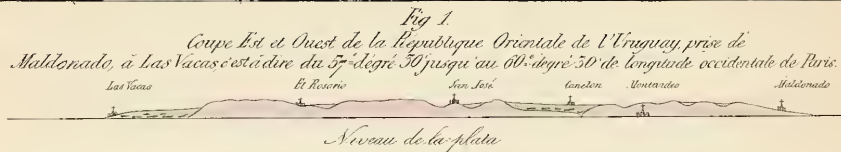 Fig 1.
Coupe Est et Ouest de la République Orientale de l'Uruguay, prise de
Maldonado, à Las Vacas, c'est à dire du 57.e dégré 30' jusqu'au 60.e degré 30' de longitude occidentale de Paris.
Las Vacas El Rosario San José Canelon Montevideo Maldonado
Niveau de la plata